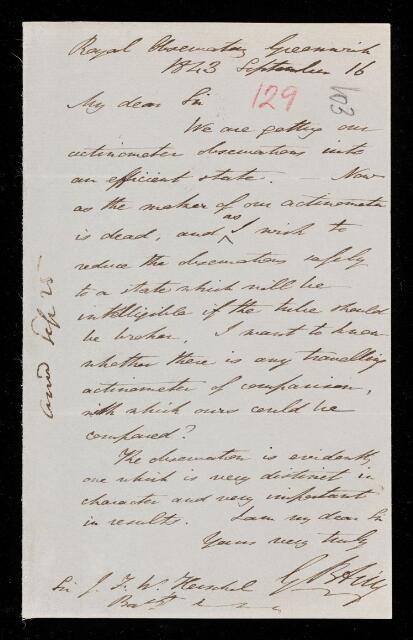 Royal Observatory Greenwich
1843 September 16
My dear Sir
129
103
We are getting our
actinometer observations into
an efficient state. Now
as the maker of our actinometer
is dead, and as I wish to
reduce the observations safely
to a state which will be
intelligible if the tube should
be broken, I want to know
whether there is any travelling
actinometer of comparison,
with which ours could be
compared?
The observation is evidently
one which is very distinct in
character and very important
in results. I am my dear Sir
Yours very truly
G B Airy
Sir J. F. W. Herschel
Bart
Sep 25